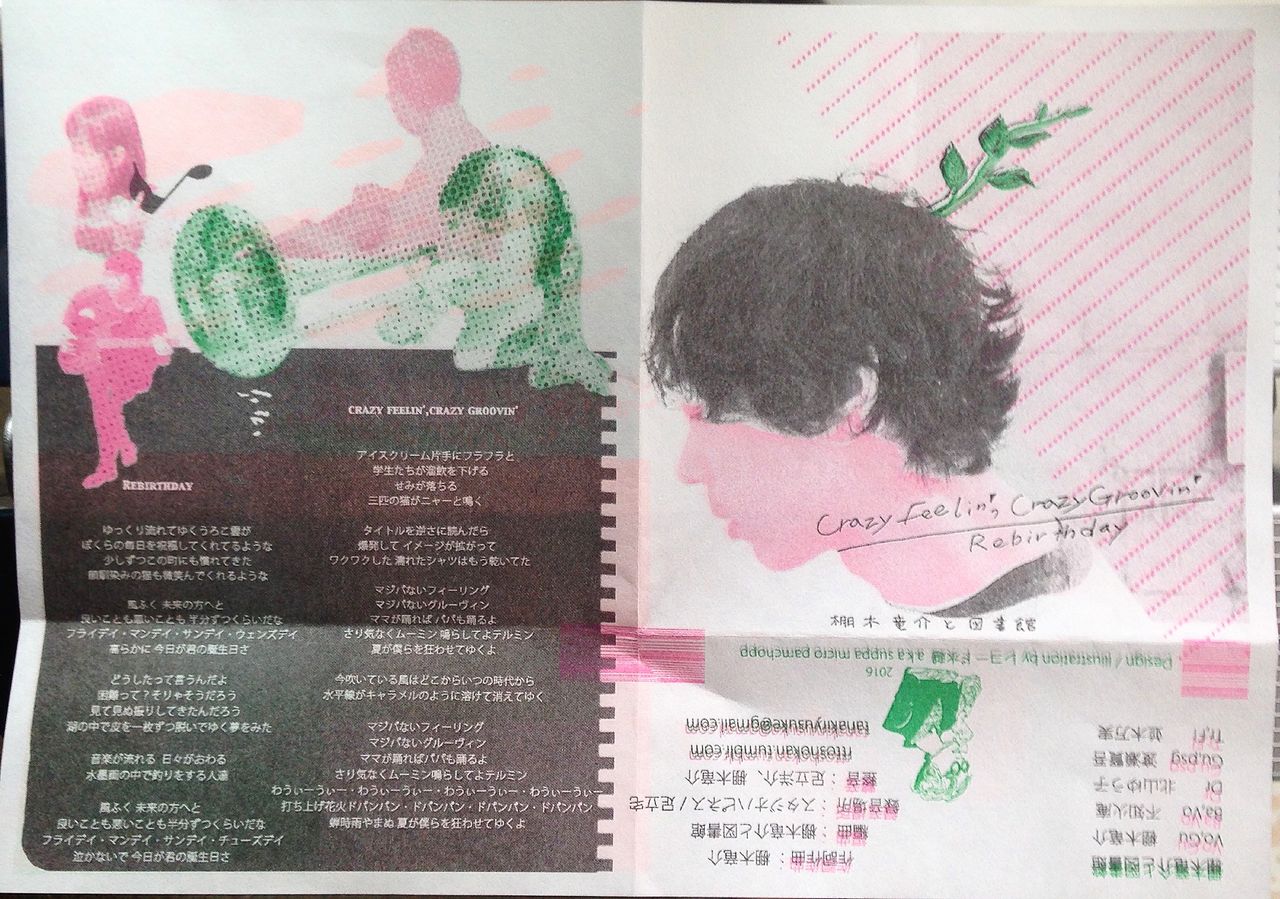 CRAZY FEELIN',CRAZY GROOVIN'
アイスクリーム片手にフラフラと
学生たちが溜飲を下げる
せみが落ちる
三匹の猫がニャーと鳴く
タイトルを逆さに読んだら
爆発して イメージが拡がって
ワクワクした 濡れたシャツはもう乾いてた
マジパないフィーリング
マジパないグルーヴィン
ママが踊ればパパも踊るよ
さり気なくムーミン 鳴らしてよテルミン
夏が僕らを狂わせてゆくよ
今吹いている風はどこからいつの時代から
水平線がキャラメルのように溶けて消えてゆく
マジパないフィーリング
マジパないグルーヴィン
ママが踊ればパパも踊るよ
さり気なくムーミン鳴らしてよテルミン
わうぃーうぃー・わうぃーうぃー・わうぃーうぃー
打ち上げ花火ドパンパン・ドパンパン・ドパンパン・ドパンパン
蝉時雨やまぬ 夏が僕らを狂わせてゆくよ
REBIRTHDAY
ゆっくり流れてゆくうろこ雲が
ぼくらの毎日を祝福してくれてるような
少しずつこの町にも慣れてきた
顔馴染みの猫も微笑んでくれるような
風ふく 未来の方へと
良いことも悪いことも 半分ずつくらいだな
フライデイ・マンデイ・サンデイ・ウェンズデイ
高らかに 今日が君の誕生日さ
どうしたって言うんだよ
困難って？そりゃそうだろう
見て見ぬ振りしてきたんだろう
湖の中で皮を一枚ずつ脱いでゆく夢をみた
音楽が流れる 日々がおわる
水墨画の中で釣りをする人達
風ふく 未来の方へと
良いことも悪いことも半分ずつくらいだな
フライデイ・マンデイ・サンデイ・チューズデイ
泣かないで 今日が君の誕生日さ
Crazy Feelin', Crazy Groovin'
Rebirthday
棚木竜介と図書館
棚木竜介と図書館
Vo,Gu 棚木竜介
Ba,Vo 不知火庵
Dr 北山ゆう子
Gu,psg 渡瀬賢吾
Tr,Fl 並木万実
作詞作曲：棚木竜介
編曲：棚木竜介と図書館
録音場所：スタジオハピネス / 足立宅
整音：足立洋介、棚木竜介
rttoshokan.tumblr.com
tanakiryusuke@gmail.com
2016
Design / Illustration by レコード水越 a.k.a suppa micro pamchopp